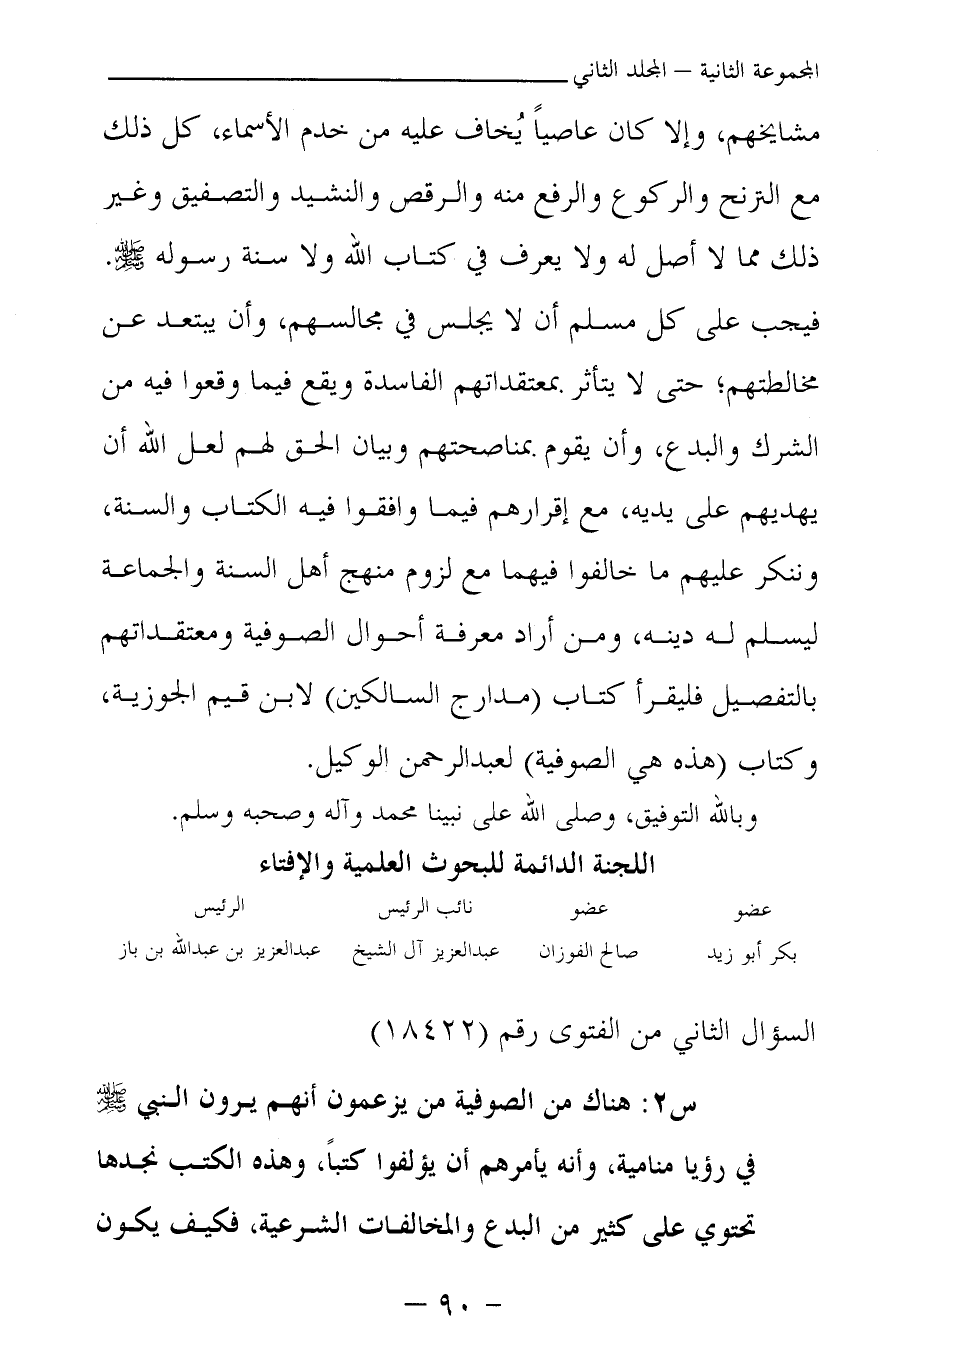 المجموعة الثانية – المجلد الثاني
مشايخهم، وإلا كان عاصياً يُخاف عليه من خدم الأسماء، كل ذلك
مع الترنح والركوع والرفع منه والرقص والنشيد والتصفيق وغير
ذلك مما لا أصل له ولا يعرف في كتاب الله ولا سنة رسوله ﷺ.
فيجب على كل مسلم أن لا يجلس في مجالسهم، وأن يبتعد عن
مخالطتهم؛ حتى لا يتأثر بمعتقداتهم الفاسدة ويقع فيما وقعوا فيه من
الشرك والبدع، وأن يقوم بمناصحتهم وبيان الحق لهم لعل الله أن
يهديهم على يديه، مع إقرارهم فيما وافقوا فيه الكتاب والسنة،
وننكر عليهم ما خالفوا فيهما مع لزوم منهج أهل السنة والجماعة
ليسلم له دينه، ومن أراد معرفة أحوال الصوفية ومعتقداتهم
بالتفصيل فليقرأ كتاب (مدارج السالكين) لابن قيم الجوزية،
وكتاب (هذه هي الصوفية) لعبدالرحمن الوكيل.
وبالله التوفيق، وصلى الله على نبينا محمد وآله وصحبه وسلم.
اللجنة الدائمة للبحوث العلمية والإفتاء
عضو عضو نائب الرئيس الرئيس
بكر أبو زيد صالح الفوزان عبدالعزيز آل الشيخ عبدالعزيز بن عبدالله بن باز
السؤال الثاني من الفتوى رقم (١٨٤٢٢)
س٢: هناك من الصوفية من يزعمون أنهم يرون النبي ﷺ
في رؤيا منامية، وأنه يأمرهم أن يؤلفوا كتباً، وهذه الكتب نجدها
تحتوي على كثير من البدع والمخالفات الشرعية، فكيف يكون
– ٩٠ –